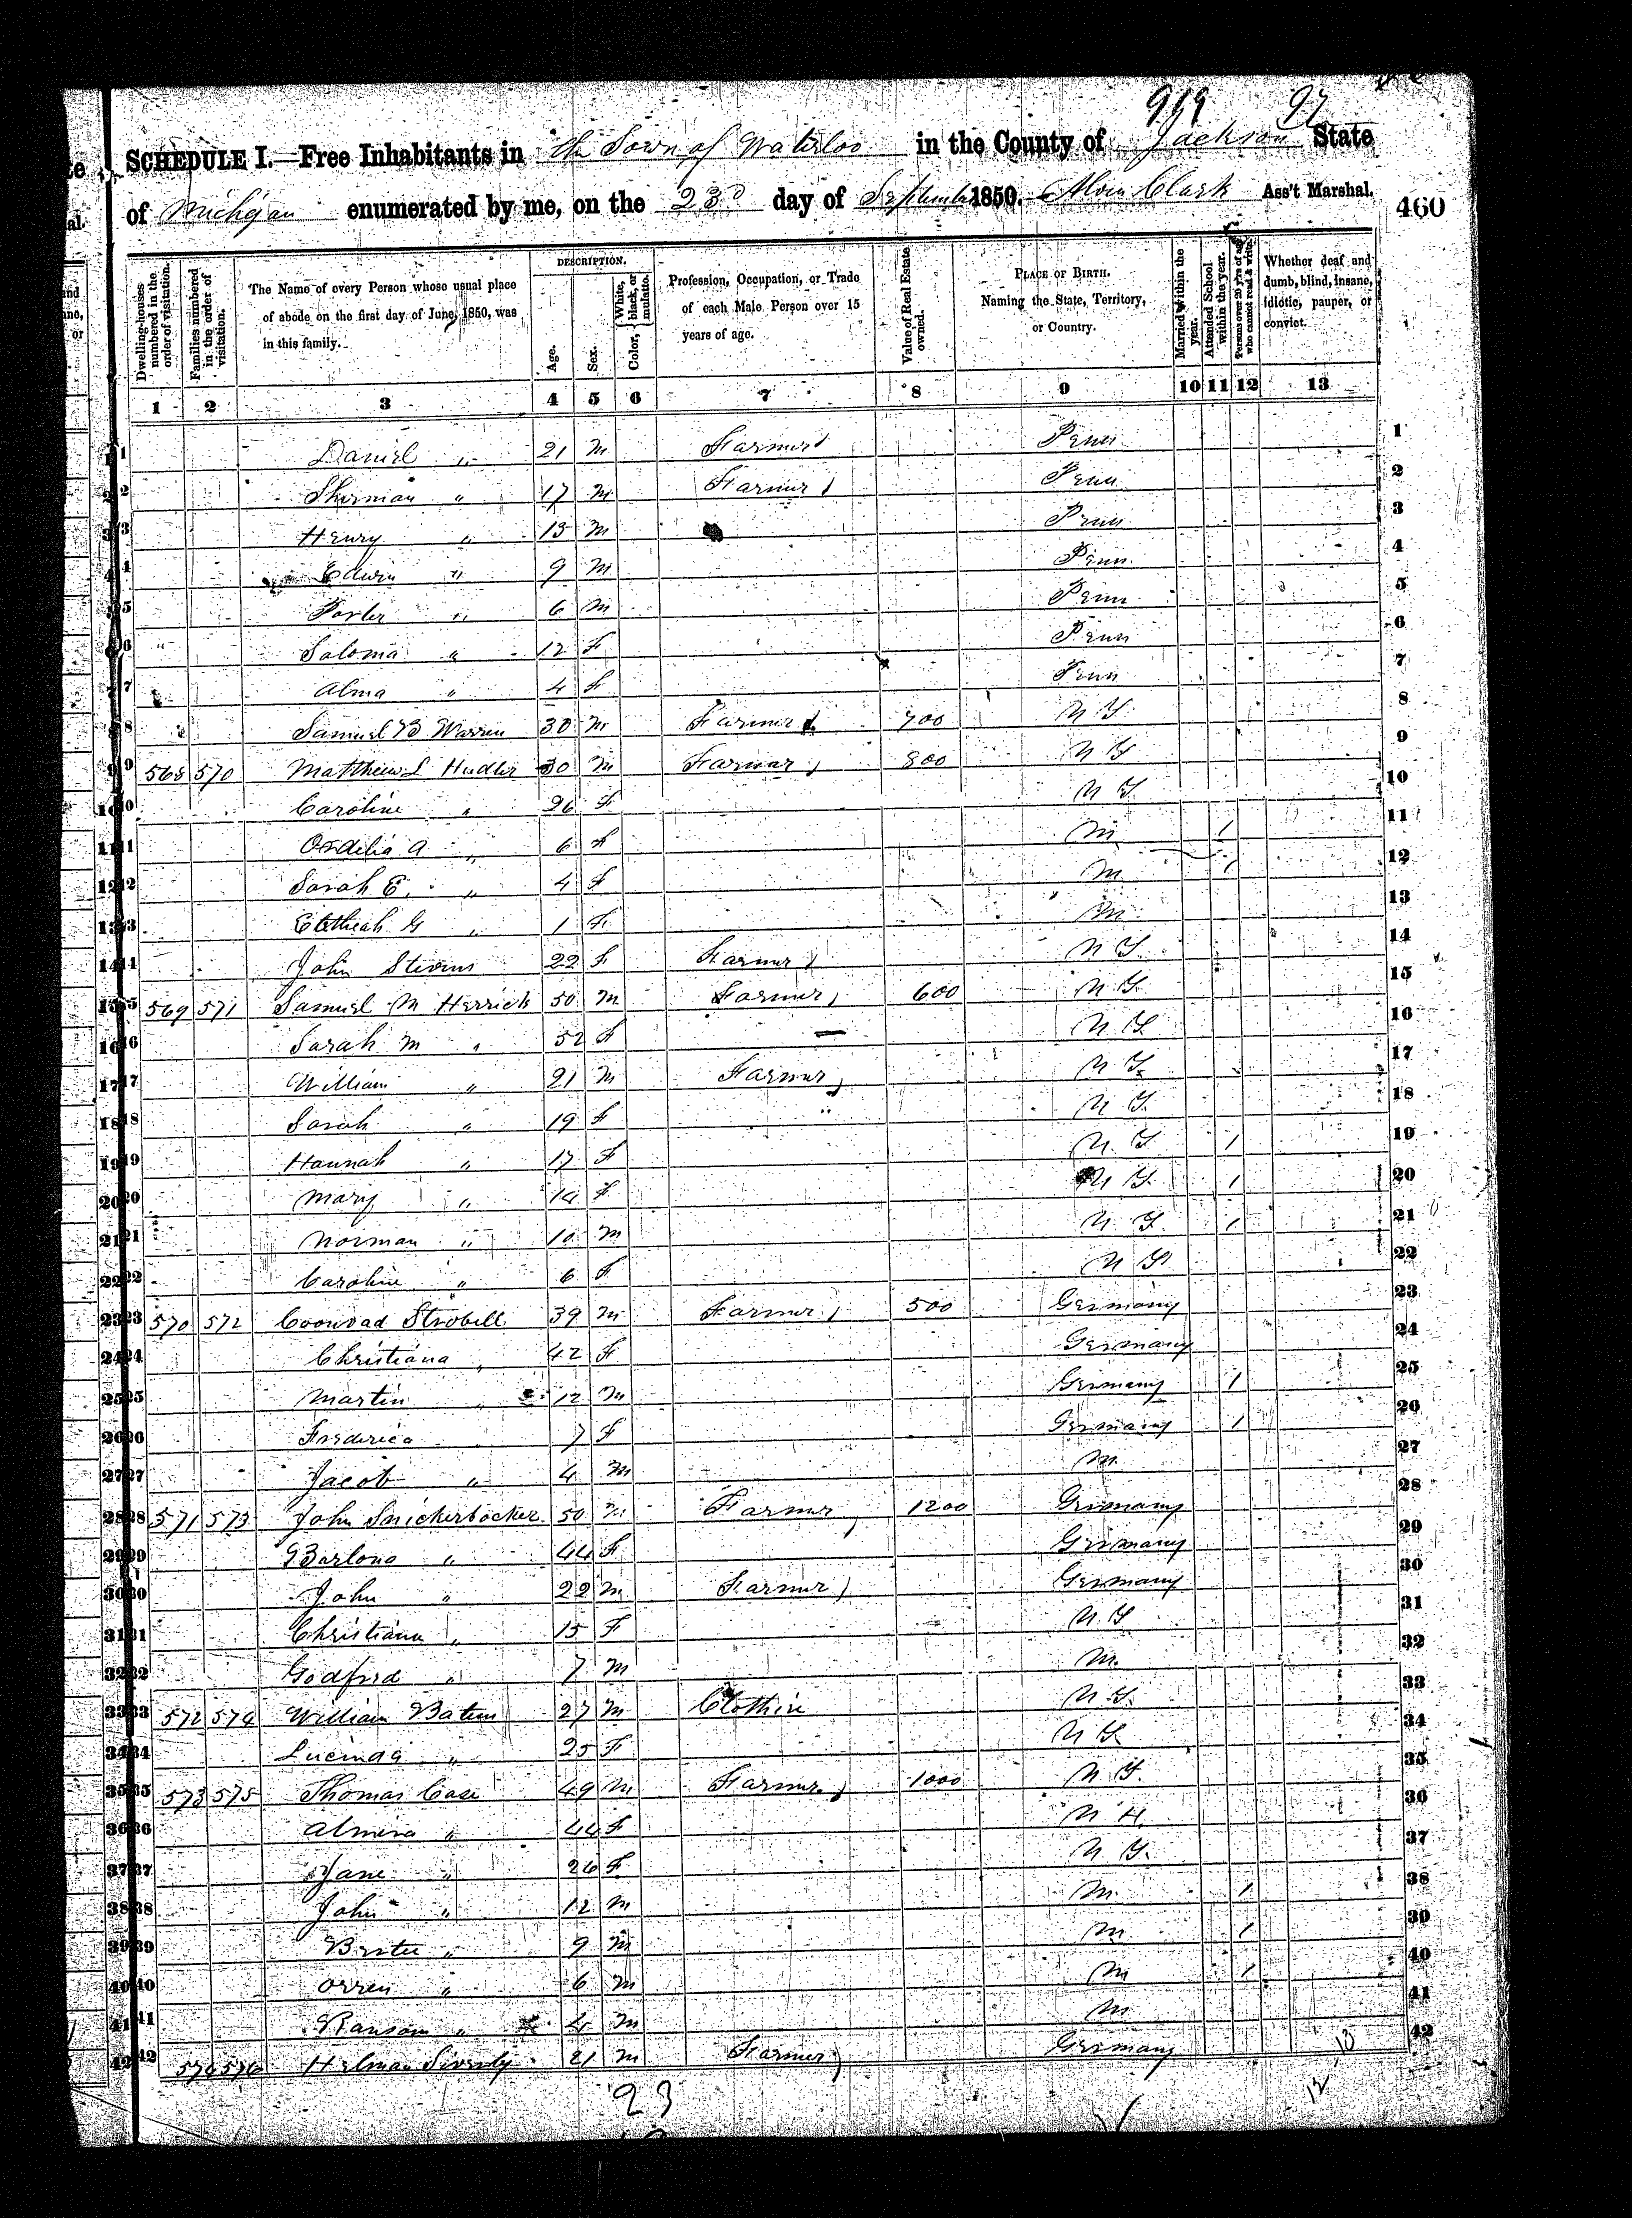 969 97
SCHEDULE I.—Free Inhabitants in the Town of Waterloo in the County of Jackson State
of Michigan enumerated by me, on the 23d day of September 1850. Alvin Clark Ass't Marshal. 460
Dwelling-houses numbered in the order of visitation.
Families numbered in the order of visitation.
The Name of every Person whose usual place of abode on the first day of June, 1850, was in this family.
DESCRIPTION.
Age.
Sex.
Color, White, black, or mulatto.
Profession, Occupation, or Trade of each Male Person over 15 years of age.
Value of Real Estate owned.
PLACE OF BIRTH. Naming the State, Territory, or Country.
Married within the year.
Attended School within the year.
Persons over 20 y'rs of age who cannot read & write.
Whether deaf and dumb, blind, insane, idiotic, pauper, or convict.
1 2 3 4 5 6 7 8 9 10 11 12 13
1 Daniel " 21 M Farmer Penn 1
2 Sherman " 17 M Farmer Penn 2
3 Henry " 15 M Penn 3
4 Edwin " 9 M Penn 4
5 Porter " 6 M Penn 5
6 Saloma " 12 F Penn 6
7 Alma " 4 F Penn 7
8 Samuel B Warren 30 M Farmer 700 N Y 8
9 568 570 Matthew L Hudler 30 M Farmer 800 N Y 9
10 Caroline " 26 F N Y 10
11 A " 6 F M 1 11
12 Sarah E. " 4 F M 1 12
13 G " 1 F M 13
14 John Stevens 22 F Farmer N Y 14
15 569 571 Samuel M Herrick 50 M Farmer 600 N Y 15
16 Sarah M " 52 F — N Y 16
17 William " 21 M Farmer N Y 17
18 Sarah " 19 F N Y 18
19 Hannah " 17 F N Y 1 19
20 Mary " 14 F N Y 1 20
21 Norman " 10 M N Y 1 21
22 Caroline " 6 F N Y 22
23 570 572 Coonrad Strobell 39 M Farmer 500 Germany 23
24 Christiana " 42 F Germany 24
25 Martin " 12 M Germany 1 25
26 Frederica " 7 F Germany 1 26
27 Jacob " 4 M M 27
28 571 573 John Snickerbocker 50 M Farmer 1200 Germany 28
29 Barlona " 44 F Germany 29
30 John " 22 M Farmer Germany 30
31 Christiana " 15 F N Y 31
32 Godfrid " 7 M M. 32
33 572 574 William Batem 27 M Clothier N Y. 33
34 Lucinda " 25 F N Y 34
35 573 575 Thomas Case 49 M Farmer 1000 N Y. 35
36 Almira " 44 F N H 36
37 Jane " 26 F N Y. 37
38 John " 12 M M 1 38
39 " 9 M M 1 39
40 Orren " 6 M M 1 40
41 Ransom " 4 M M 41
42 574 576 Helman 21 M Farmer Germany 42
23 12 10